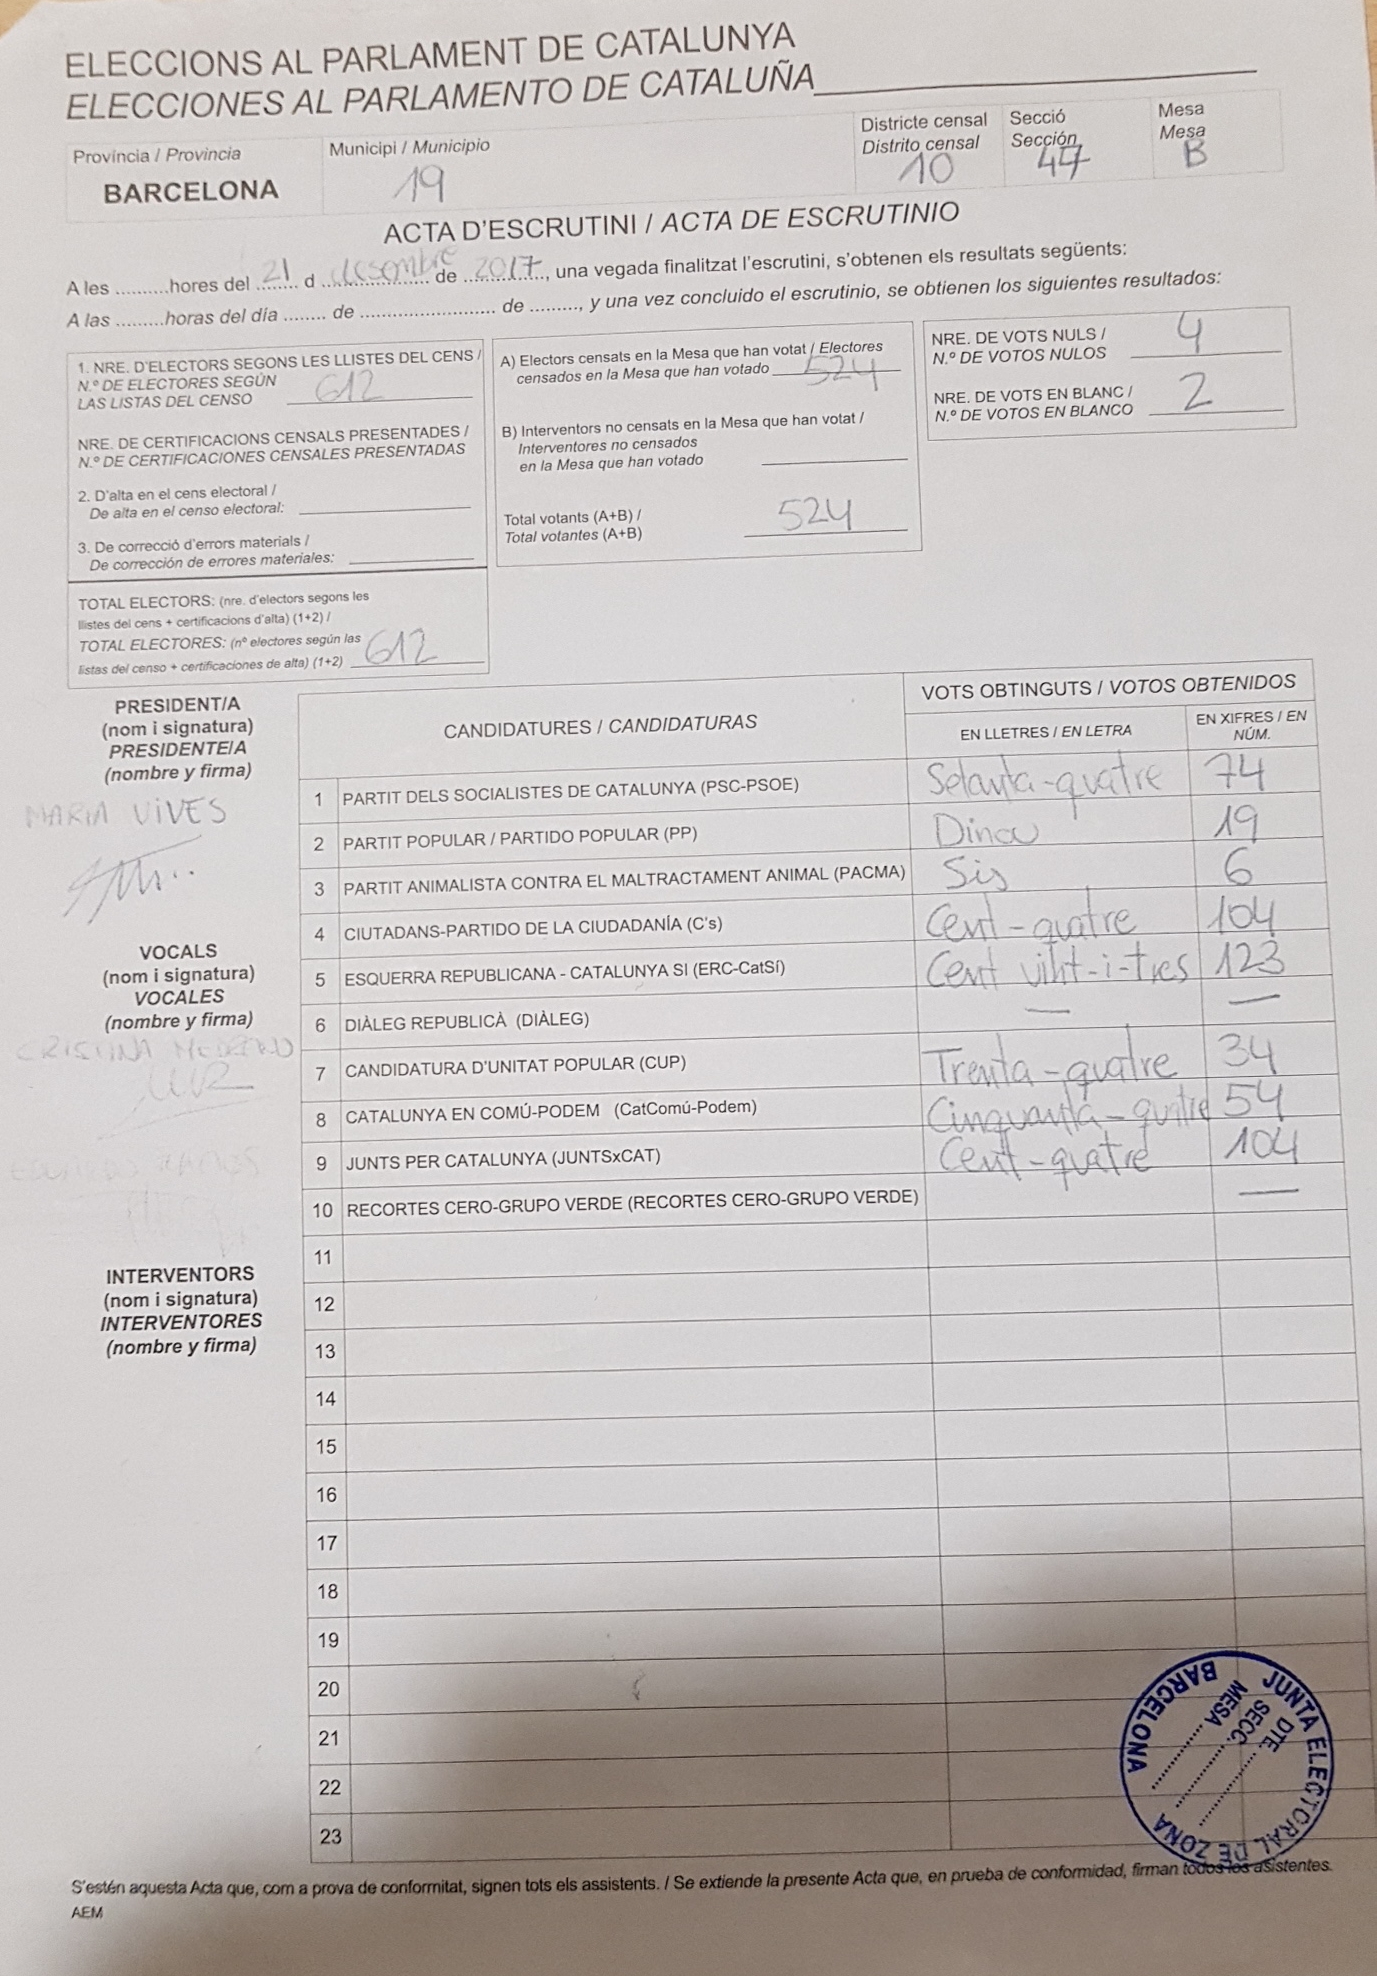 ELECCIONS AL PARLAMENT DE CATALUNYA
ELECCIONES AL PARLAMENTO DE CATALUÑA
Província / Provincia
BARCELONA
Municipi / Municipio
19
Districte censal
Distrito censal
10
Secció
Sección
47
Mesa
Mesa
B
ACTA D'ESCRUTINI / ACTA DE ESCRUTINIO
A les ..........hores del 21 d desembre de 2017, una vegada finalitzat l'escrutini, s'obtenen els resultats següents:
A las .........horas del día ........ de .......................... de ........., y una vez concluido el escrutinio, se obtienen los siguientes resultados:
1. NRE. D'ELECTORS SEGONS LES LLISTES DEL CENS /
N.º DE ELECTORES SEGÚN
LAS LISTAS DEL CENSO 612
NRE. DE CERTIFICACIONS CENSALS PRESENTADES /
N.º DE CERTIFICACIONES CENSALES PRESENTADAS
2. D'alta en el cens electoral /
De alta en el censo electoral:
3. De correcció d'errors materials /
De corrección de errores materiales:
TOTAL ELECTORS: (nre. d'electors segons les
llistes del cens + certificacions d'alta) (1+2) /
TOTAL ELECTORES: (nº electores según las
listas del censo + certificaciones de alta) (1+2) 612
A) Electors censats en la Mesa que han votat / Electores
censados en la Mesa que han votado 524
B) Interventors no censats en la Mesa que han votat /
Interventores no censados
en la Mesa que han votado
Total votants (A+B) /
Total votantes (A+B) 524
NRE. DE VOTS NULS /
N.º DE VOTOS NULOS 4
NRE. DE VOTS EN BLANC /
N.º DE VOTOS EN BLANCO 2
PRESIDENT/A
(nom i signatura)
PRESIDENTE/A
(nombre y firma)
MARIA VIVES
VOCALS
(nom i signatura)
VOCALES
(nombre y firma)
CRISTINA
INTERVENTORS
(nom i signatura)
INTERVENTORES
(nombre y firma)
CANDIDATURES / CANDIDATURAS
VOTS OBTINGUTS / VOTOS OBTENIDOS
EN LLETRES / EN LETRA
EN XIFRES / EN NÚM.
1 PARTIT DELS SOCIALISTES DE CATALUNYA (PSC-PSOE) Setanta-quatre 74
2 PARTIT POPULAR / PARTIDO POPULAR (PP) Dinou 19
3 PARTIT ANIMALISTA CONTRA EL MALTRACTAMENT ANIMAL (PACMA) Sis 6
4 CIUTADANS-PARTIDO DE LA CIUDADANÍA (C's) Cent-quatre 104
5 ESQUERRA REPUBLICANA - CATALUNYA SI (ERC-CatSí) Cent vint-i-tres 123
6 DIÀLEG REPUBLICÀ (DIÀLEG) — —
7 CANDIDATURA D'UNITAT POPULAR (CUP) Trenta-quatre 34
8 CATALUNYA EN COMÚ-PODEM (CatComú-Podem) Cinquanta-quatre 54
9 JUNTS PER CATALUNYA (JUNTSxCAT) Cent-quatre 104
10 RECORTES CERO-GRUPO VERDE (RECORTES CERO-GRUPO VERDE) —
11
12
13
14
15
16
17
18
19
20
21
22
23
JUNTA ELECTORAL DE ZONA
BARCELONA
DTE.
SECC.
MESA
S'estén aquesta Acta que, com a prova de conformitat, signen tots els assistents. / Se extiende la presente Acta que, en prueba de conformidad, firman todos los asistentes.
AEM